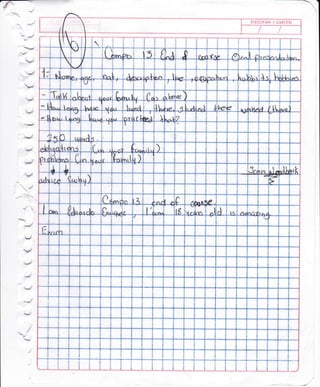 FECHA / DATE
16
Compo 13 End of course Oral presentation.
1- Name, age, nat, description, live, occupation, habbits, hobbies
- Talk about your family (as above)
- How long have you lived, there, studied there worked (there)
- How long have you practiced that?
250 words.
obligations (in your family)
problems (in your family)
advice (why)
Compo 13 end of course.
I am Eduardo, I'am 18 years old is amazing
Exam